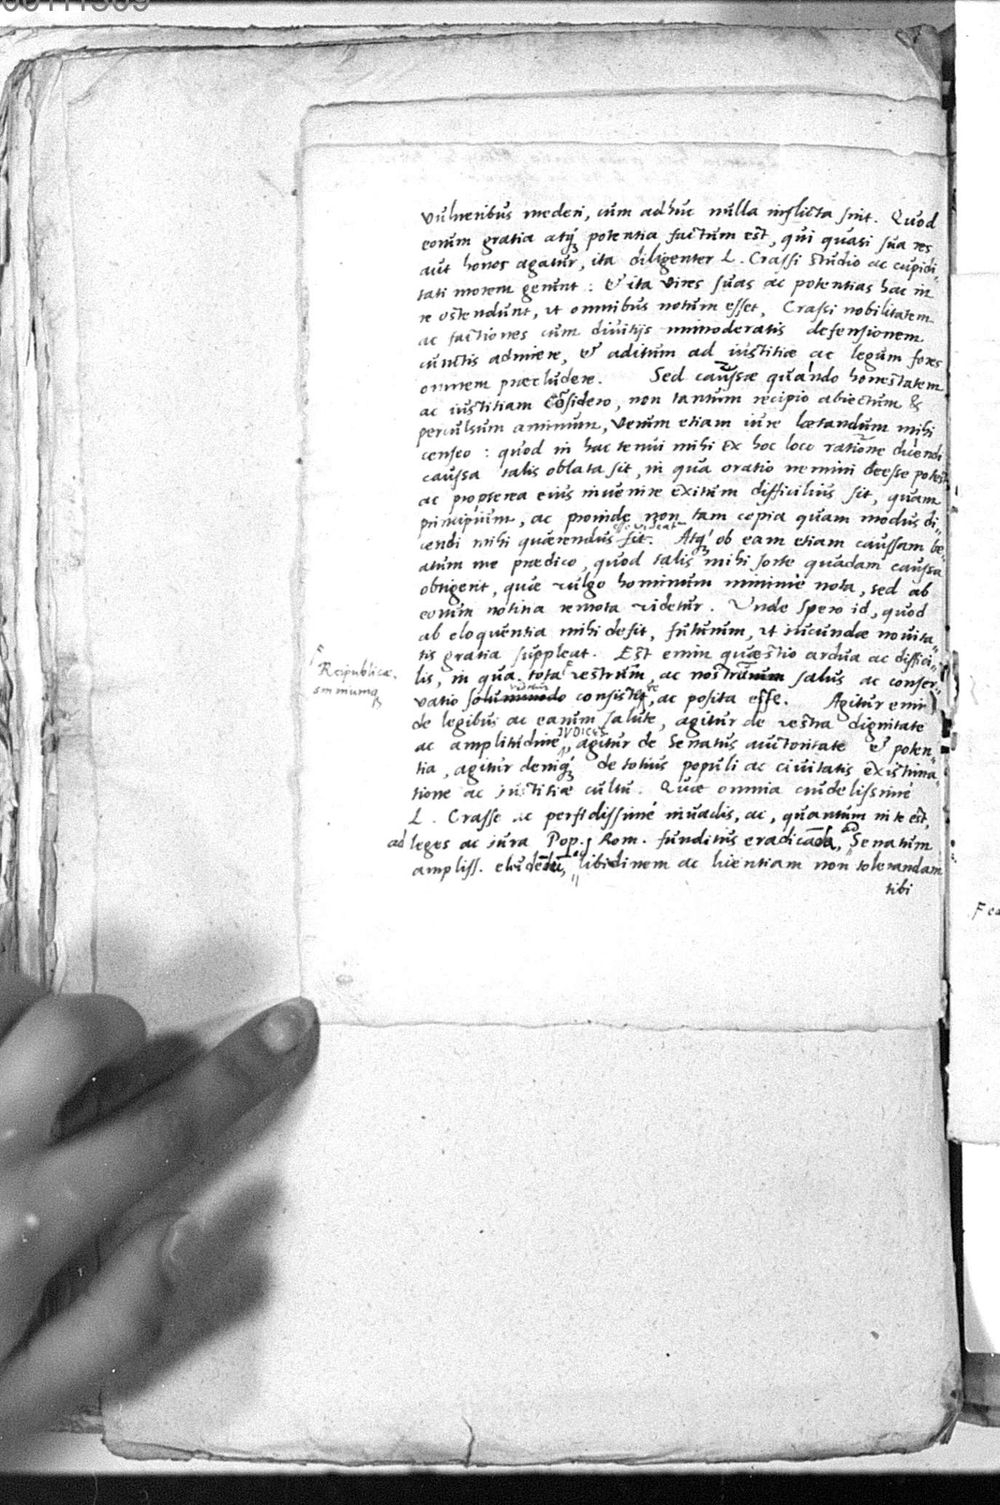 vulneribus mederi, cum adhuc nulla inflicta sint. Quod
eorum gratia atq; potentia factum est, qui quasi sua res
aut honos agatur, ita diligenter L. Crassi studio ac cupidi-
tati morem gerunt: & ita vires suas ac potentias hac in
re ostendunt, ut omnibus notum esset, Crassi nobilitatem
ac factiones cum divitijs immoderatis defensionem
cunctis adimere, & aditum ad iustitiæ ac legum fores
omnem præcludere. Sed caussæ quando honestatem
ac iustitiam cõsidero, non tantum recipio abiectum &
perculsum animum, verum etiam iure lætandum mihi
censeo: quod in hac tenui mihi ex hoc loco ratione dicendi
caussa talis oblata sit, in qua oratio nemini deesse potest
ac propterea eius invenire exitum difficilius sit, quam
principium, ac proinde non tam copia quam modus di-
cendi mihi quærendus sit. Atq; ob eam etiam caussam be-
atum me prædico, quod talis mihi sorte quadam caussa
obtigerit, quæ vulgo hominum minimè nota, sed ab
eorum notitia remota videtur. Unde spero id, quod
ab eloquentia mihi desit, futurum, ut iucundæ novita-
tis gratia suppleat. Est enim quæstio ardua ac diffici-
Reipublicæ,
lis, in qua tota vestrum, ac nostrum salus ac conser-
summumq;
vatio solummodo consistit, ac posita esse. Agitur enim
de legibus ac earum salute, agitur de vestra dignitate
IUDICES
ac amplitudine, agitur de Senatus auctoritate & poten-
tia, agitur deniq; de totius populi ac civitatis existima-
tione ac iustitiæ cultu. Quæ omnia crudelissimè
L. Crasse ac perfidissimè invadis, ac, quantum in te est,
ad leges ac iura Pop. Rom. funditus eradicãda, Senatum
ampliss. libidinem ac licentiam non tolerandam
tibi